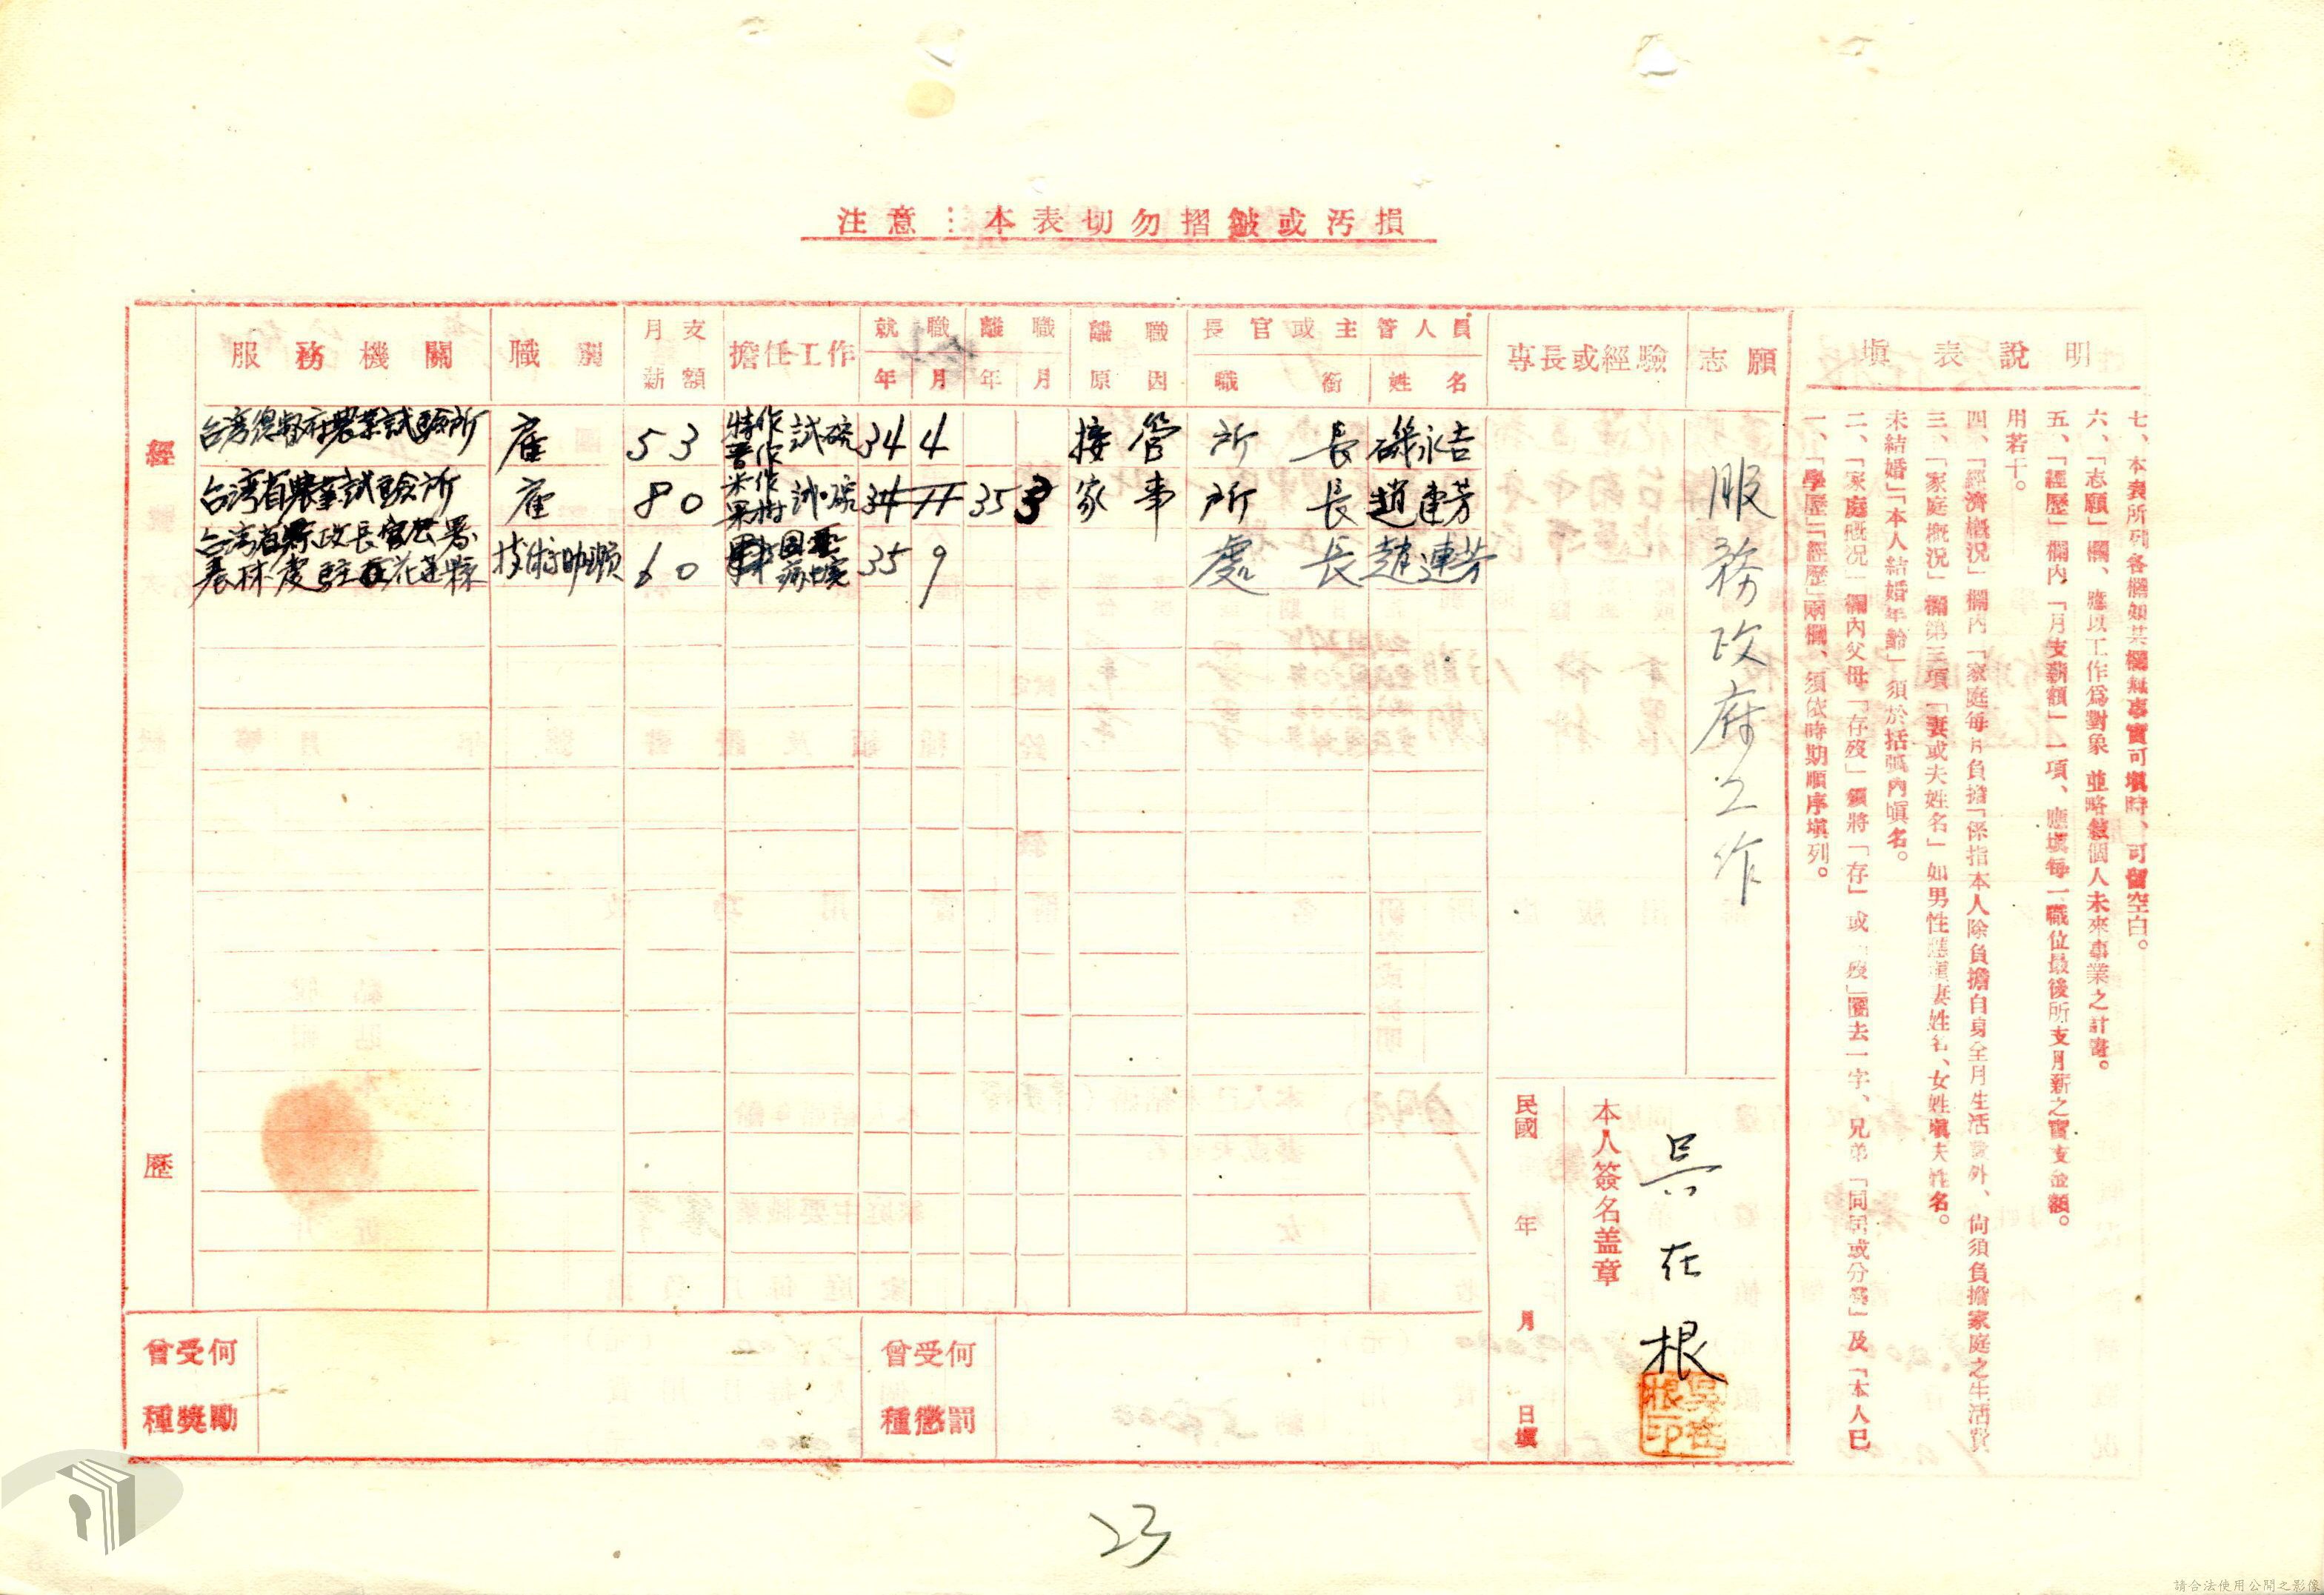 注意：本表切勿摺皺或汚損
經歷
服務機關 職別 月支薪額 擔任工作 就職年月 離職年月 離職原因 長官或主管人員 職銜 姓名 專長或經驗 志願
台湾總督府農業試驗所 雇 53 特作普作試硏 34 4 接管 所長 磯永吉
台湾省農業試驗所 雇 80 果樹試硏 34 11 35 3 家事 所長 趙連芳
台湾省行政長官公署
農林處駐在花蓮縣 技術助理員 60 35 9 處長 趙連芳
服務政府工作
民國 年 月 日塡
本人簽名盖章
吳在根
吳在根印
曾受何種獎勵
曾受何種懲罰
塡表說明
一、「學歷」「經歷」兩欄、須依時期順序塡列。
二、「家庭概况」欄內父母「存歿」須將「存」或「歿」圈去一字、兄弟「同居或分爨」及「本人已
未結婚」「本人結婚年齡」須於括弧內塡名。
三、「家庭概况」欄第三項「妻或夫姓名」如男性應塡妻姓名、女姓塡夫姓名。
四、「經濟概況」欄內「家庭每月負擔」係指本人除負擔自身全月生活費外、尙須負擔家庭之生活費
用若干。
五、「經歷」欄內「月支薪額」一項、應塡每一職位最後所支月薪之實支金額。
六、「志願」欄、應以工作爲對象 並略敍個人未來事業之計畫。
七、本表所列各欄如某欄無事實可塡時、可留空白。
23
請合法使用公開之影像